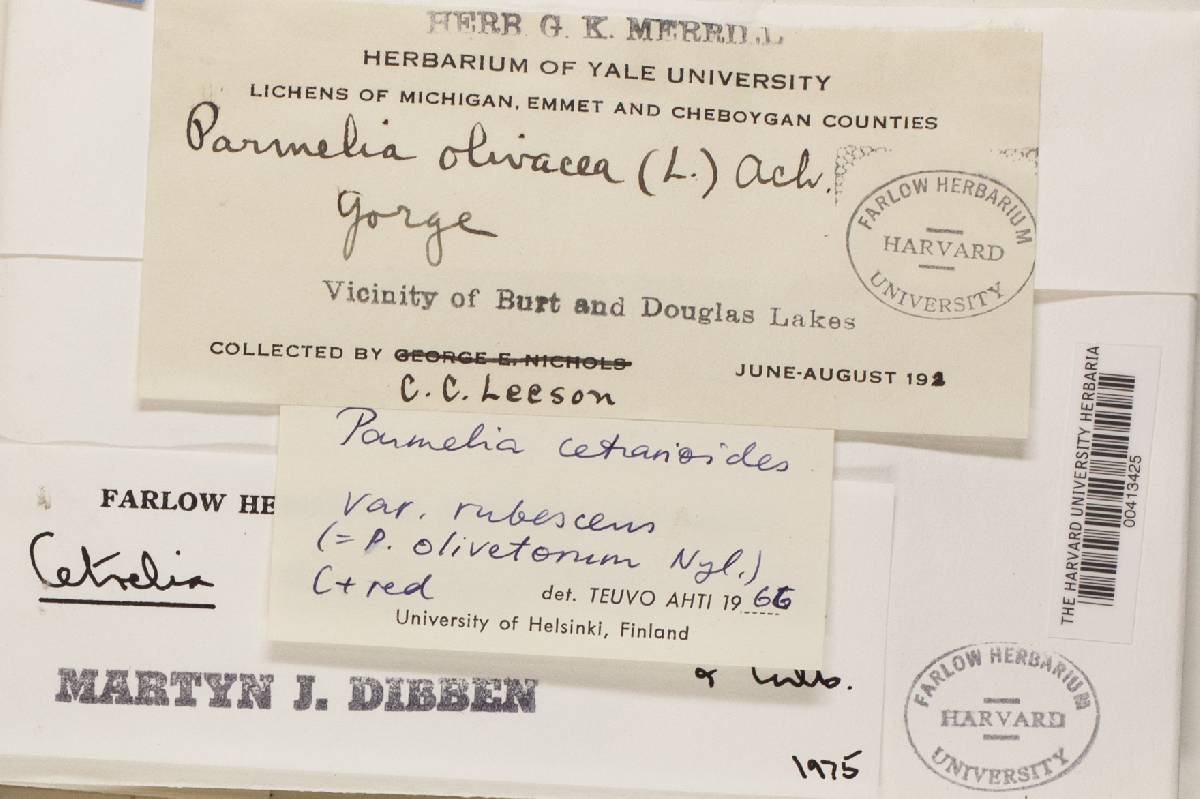 HERB G. K. MERRILL
HERBARIUM OF YALE UNIVERSITY
LICHENS OF MICHIGAN, EMMET AND CHEBOYGAN COUNTIES
Parmelia olivacea (L.) Ach.
Gorge
FARLOW HERBARIUM
HARVARD
UNIVERSITY
Vicinity of Burt and Douglas Lakes
COLLECTED BY GEORGE E. NICHOLS
JUNE-AUGUST 192
C. C. Leeson
Parmelia cetrarioides
var. rubescens
(= P. olivetorum Nyl.)
C+ red
det. TEUVO AHTI 1966
University of Helsinki, Finland
FARLOW HE
Cetrelia
MARTYN J. DIBBEN
1975
THE HARVARD UNIVERSITY HERBARIA
00413425
FARLOW HERBARIUM
HARVARD
UNIVERSITY